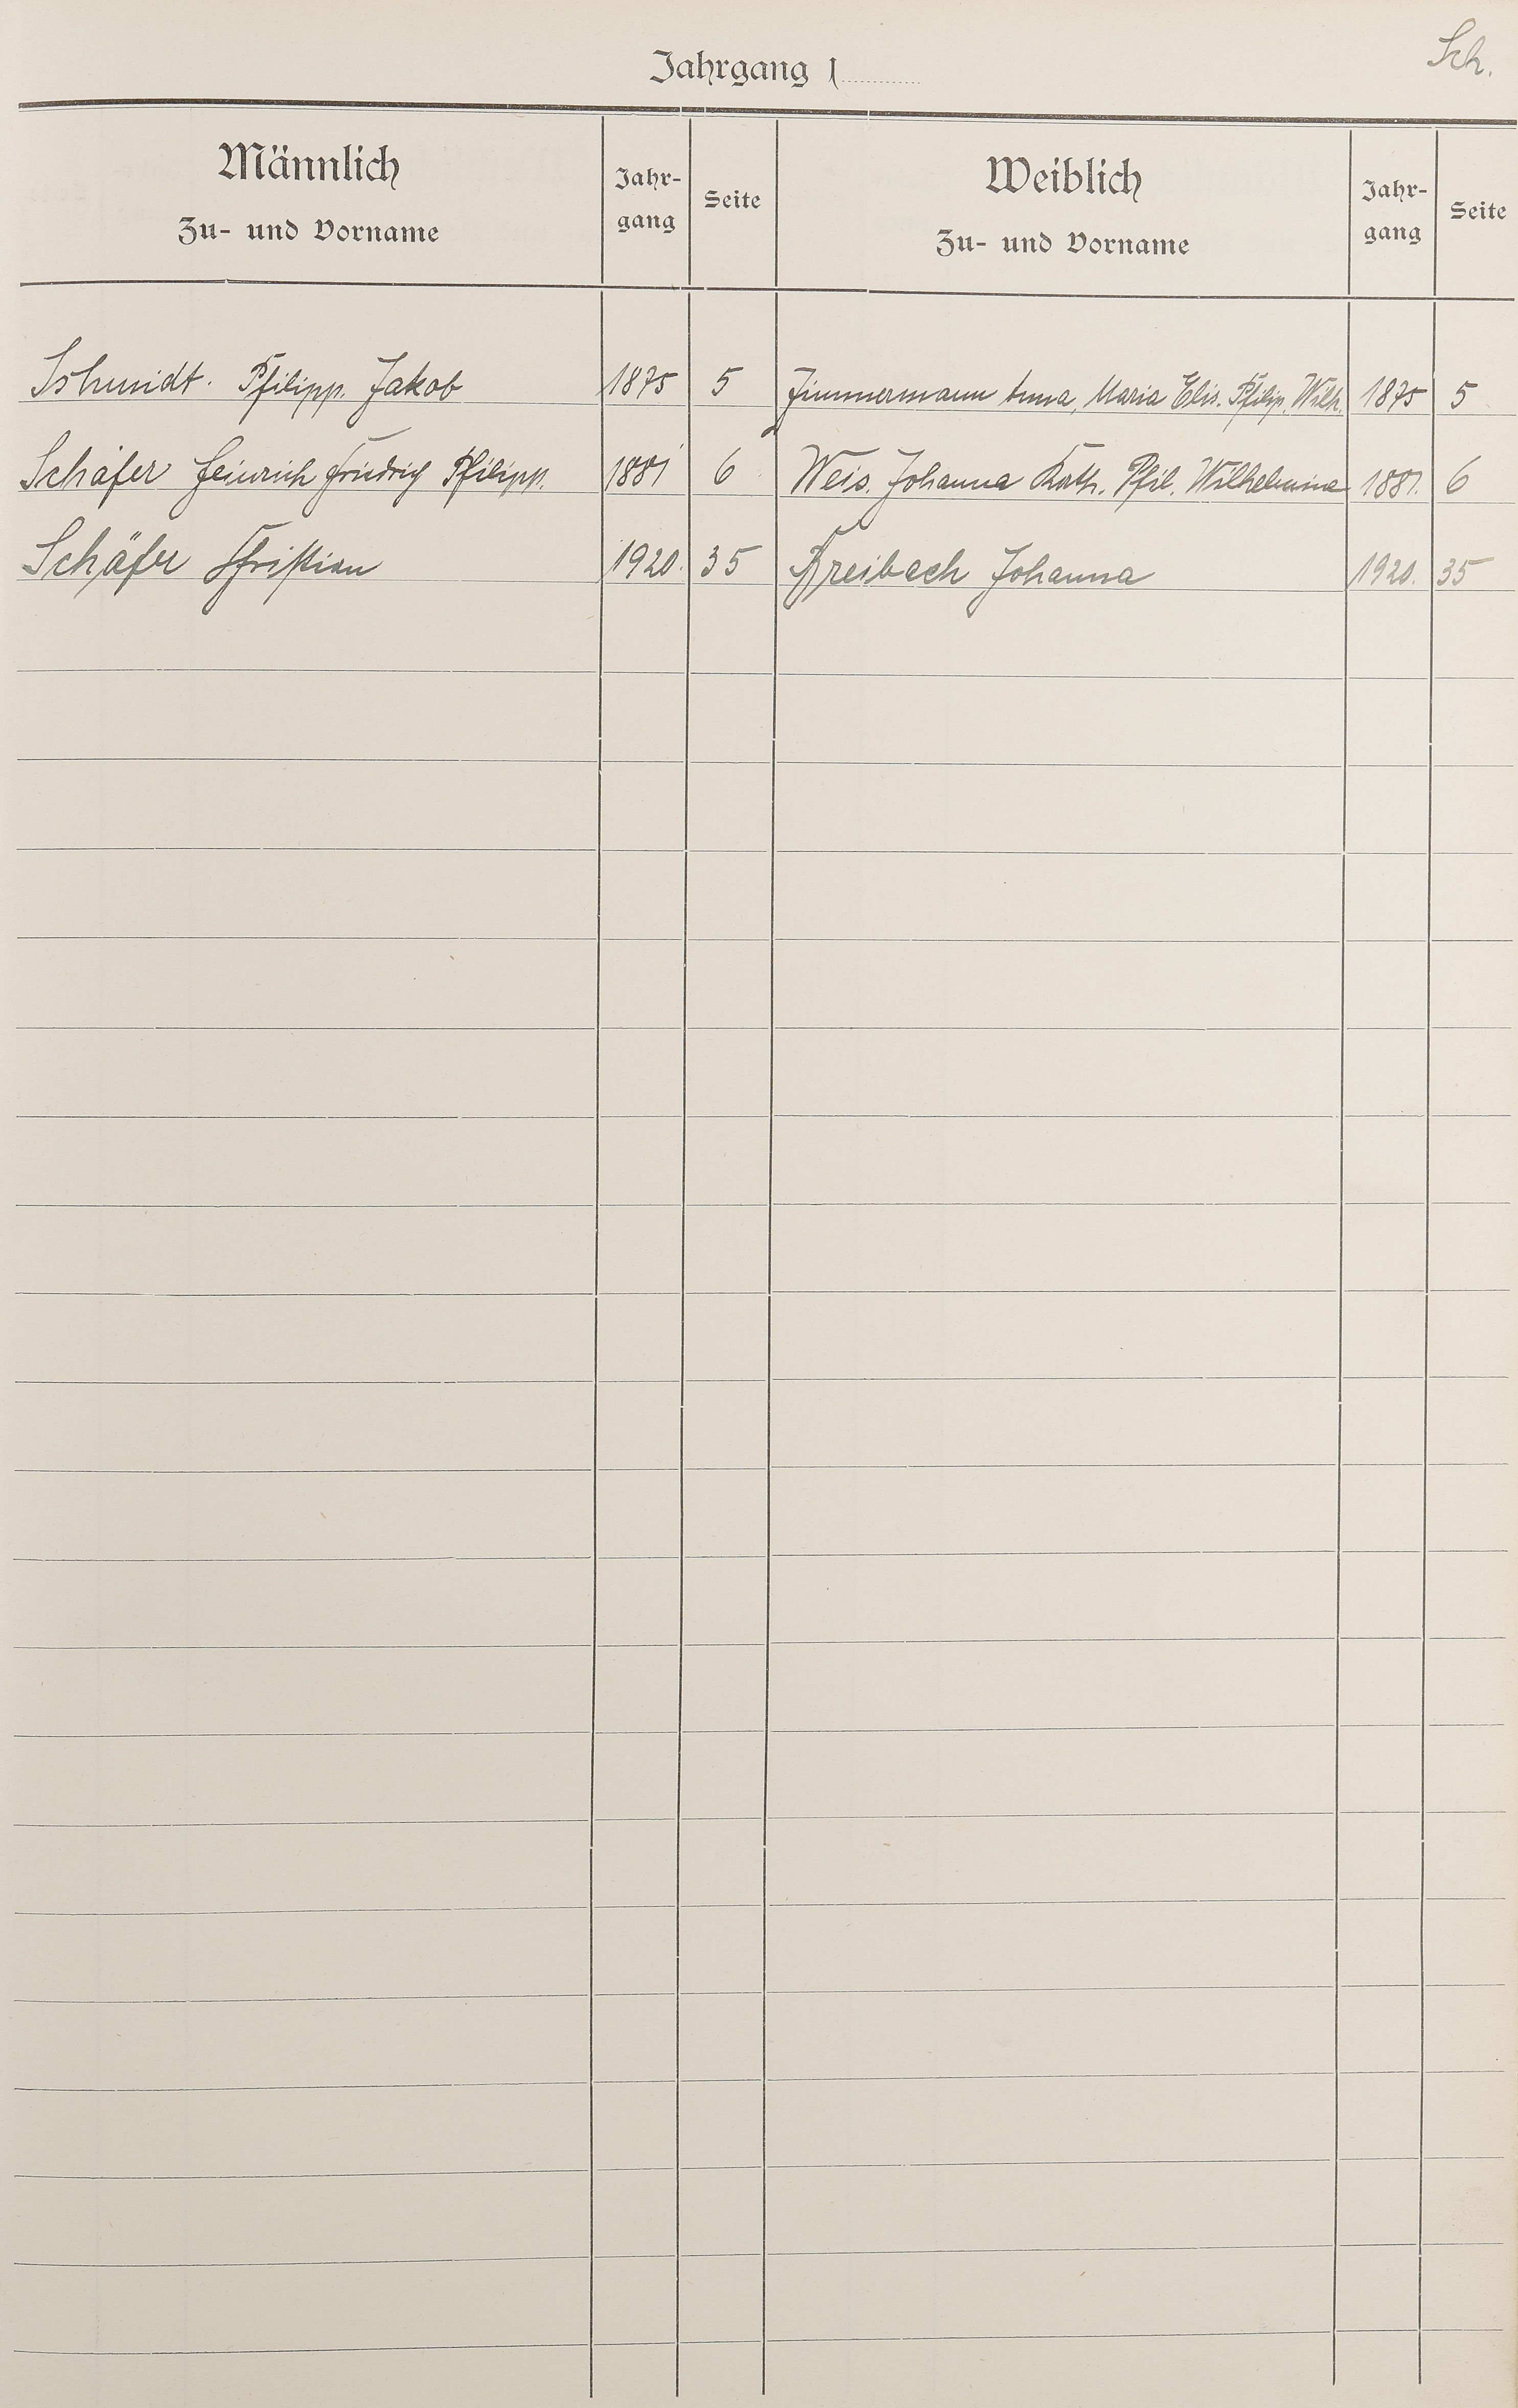 Sch.
Jahrgang 1
Männlich
Zu- und Vorname
Jahr-
gang
Seite
Weiblich
Zu- und Vorname
Jahr-
gang
Seite
Schmidt. Philipp. Jakob 1875 5 Zimmermann Anna, Maria Elis. Philip. Wilh. 1875 5
Schäfer Heinrich Friedrich Philipp. 1881 6 Weis. Johanna Kath. Phil. Wilhelmina 1881. 6
Schäfer Christian 1920. 35 Breibach Johanna 1920. 35